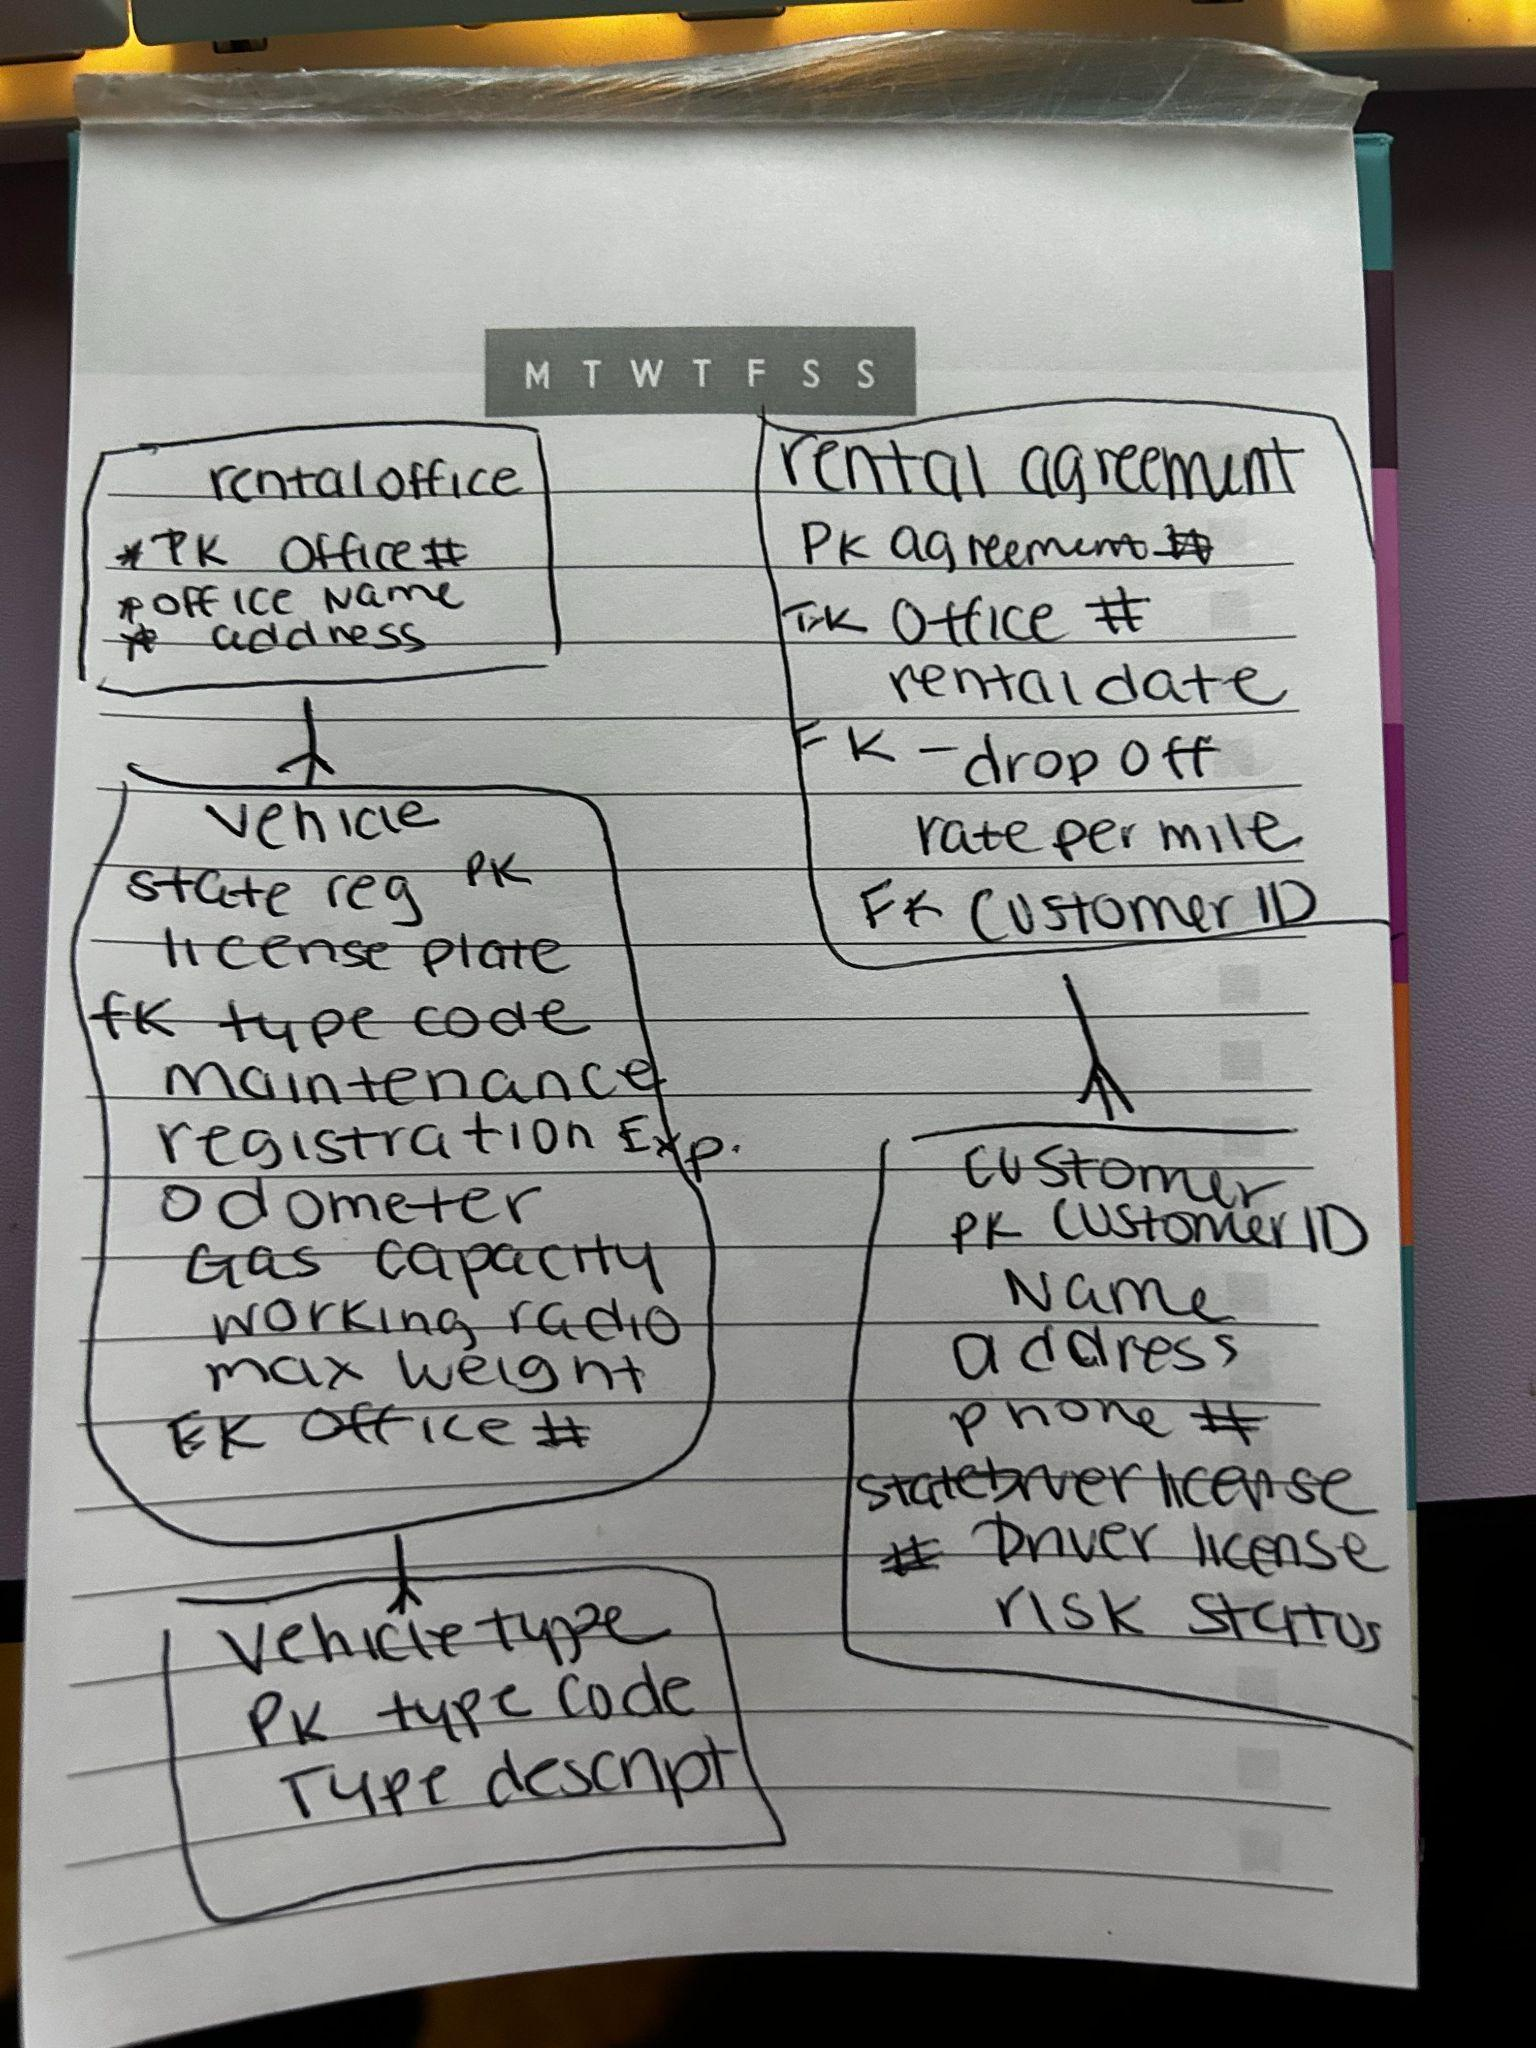 M T W T F S S
rental office
* PK Office #
* office Name
* address
vehicle
state reg PK
license plate
FK type code
maintenance
registration Exp.
odometer
Gas capacity
working radio
max weight
FK Office #
vehicle type
PK type code
Type descript
rental agreement
PK agreement #
FK Office #
rental date
FK - drop off
rate per mile
FK Customer ID
customer
PK Customer ID
Name
address
phone #
state Driver license
# Driver license
risk status